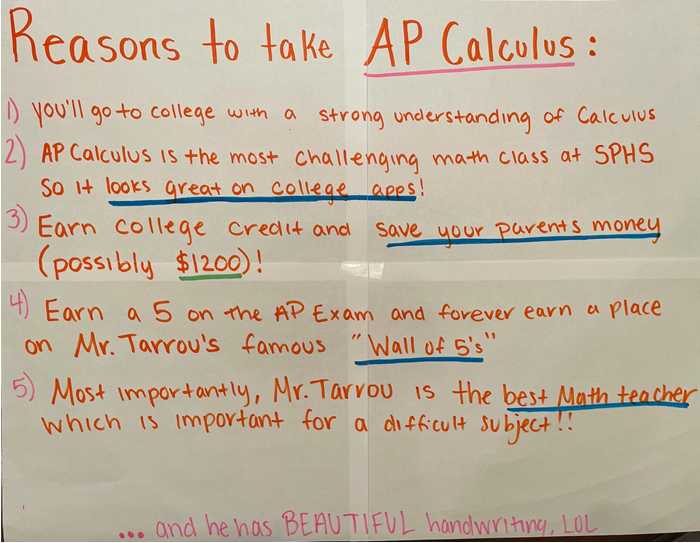 Reasons to take AP Calculus:
1) You'll go to college with a strong understanding of Calculus
2) AP Calculus is the most challenging math class at SPHS
So it looks great on college apps!
3) Earn college credit and save your parents money
(possibly $1200)!
4) Earn a 5 on the AP Exam and forever earn a place
on Mr. Tarrou's famous "Wall of 5's"
5) Most importantly, Mr. Tarrou is the best Math teacher
which is important for a difficult subject!!
... and he has BEAUTIFUL handwriting, LOL